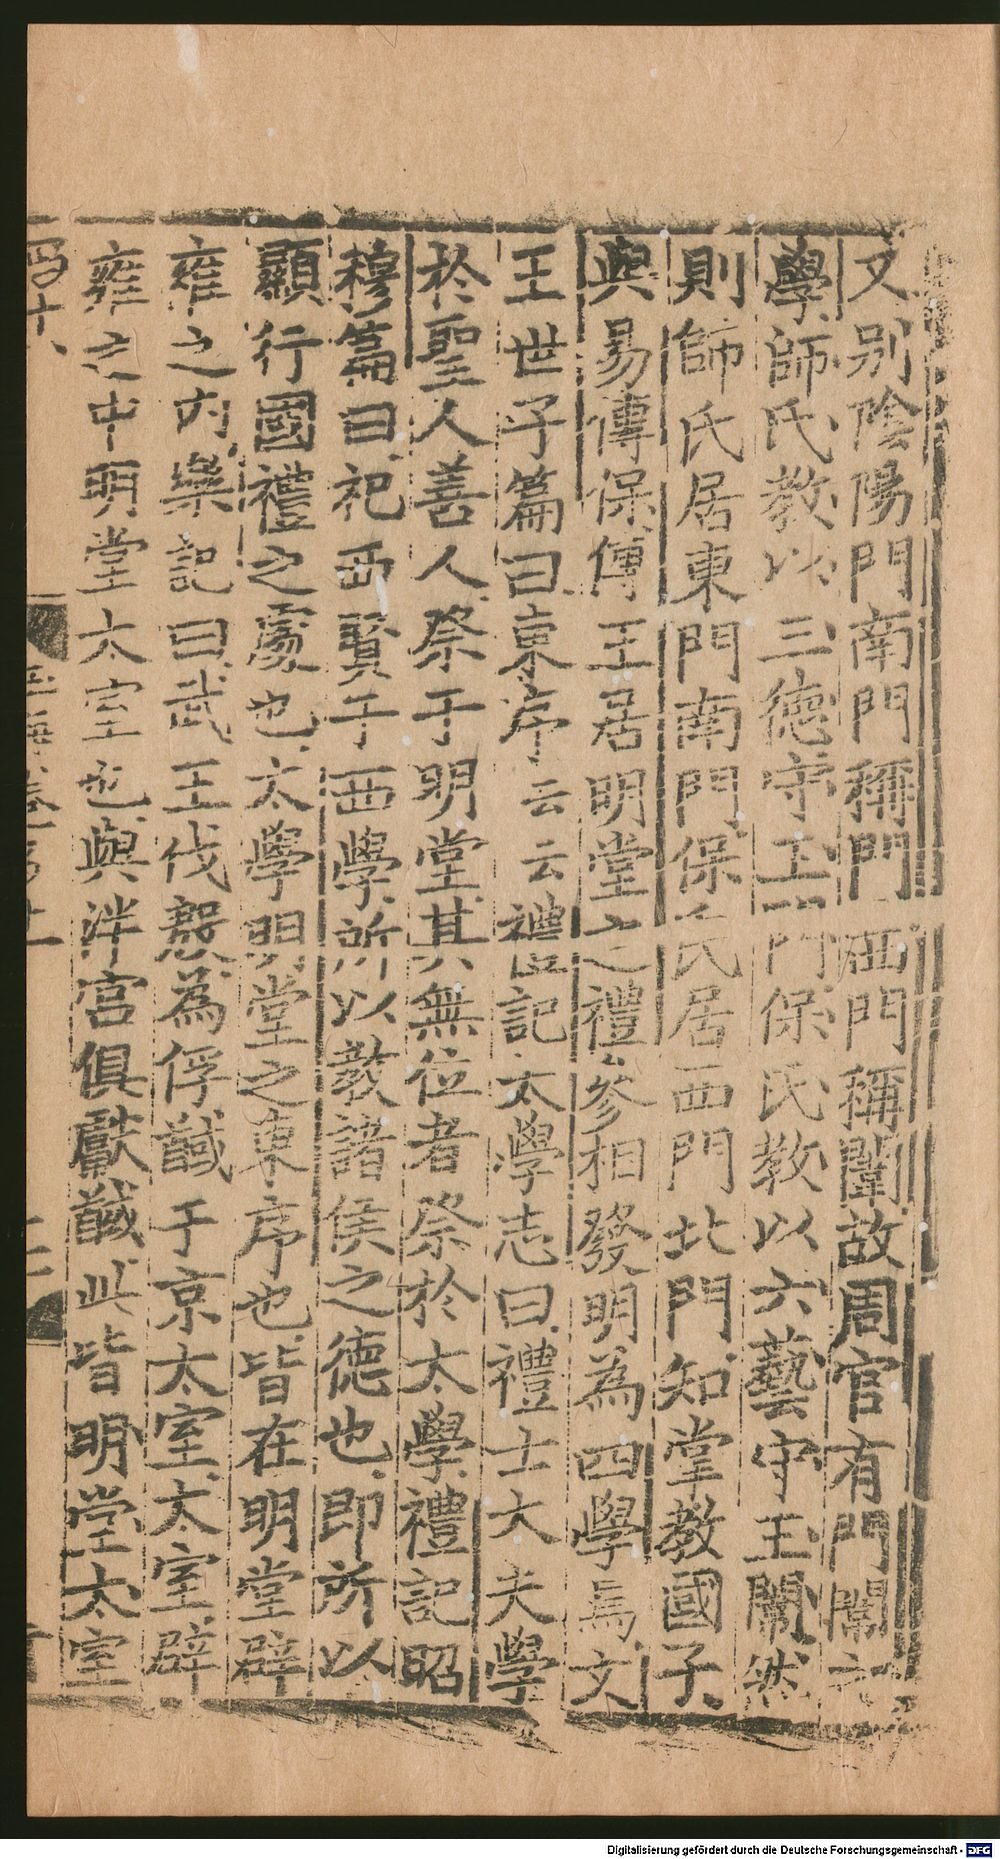 又别陰陽門南門稱門西門稱闈故周官有門闈之
學師氏教以三德守王門保氏教以六藝守王闈然
則師氏居東門南門保氏居西門北門知掌教國子
與易傳保傅王居明堂之禮參相發明為四學焉文
王世子篇曰東序云云禮記太學志曰禮士大夫學
於聖人善人祭于明堂其無位者祭於太學禮記昭
穆篇曰祀西賢于西學所以教諸侯之德也即所以
顯行國禮之處也太學明堂之東序也皆在明堂辟
雍之内樂記曰武王伐殷為俘馘于京太室太室辟
雍之中明堂太室也與泮宮俱獻馘此皆明堂太室
Digitalisierung gefördert durch die Deutsche Forschungsgemeinschaft - DFG